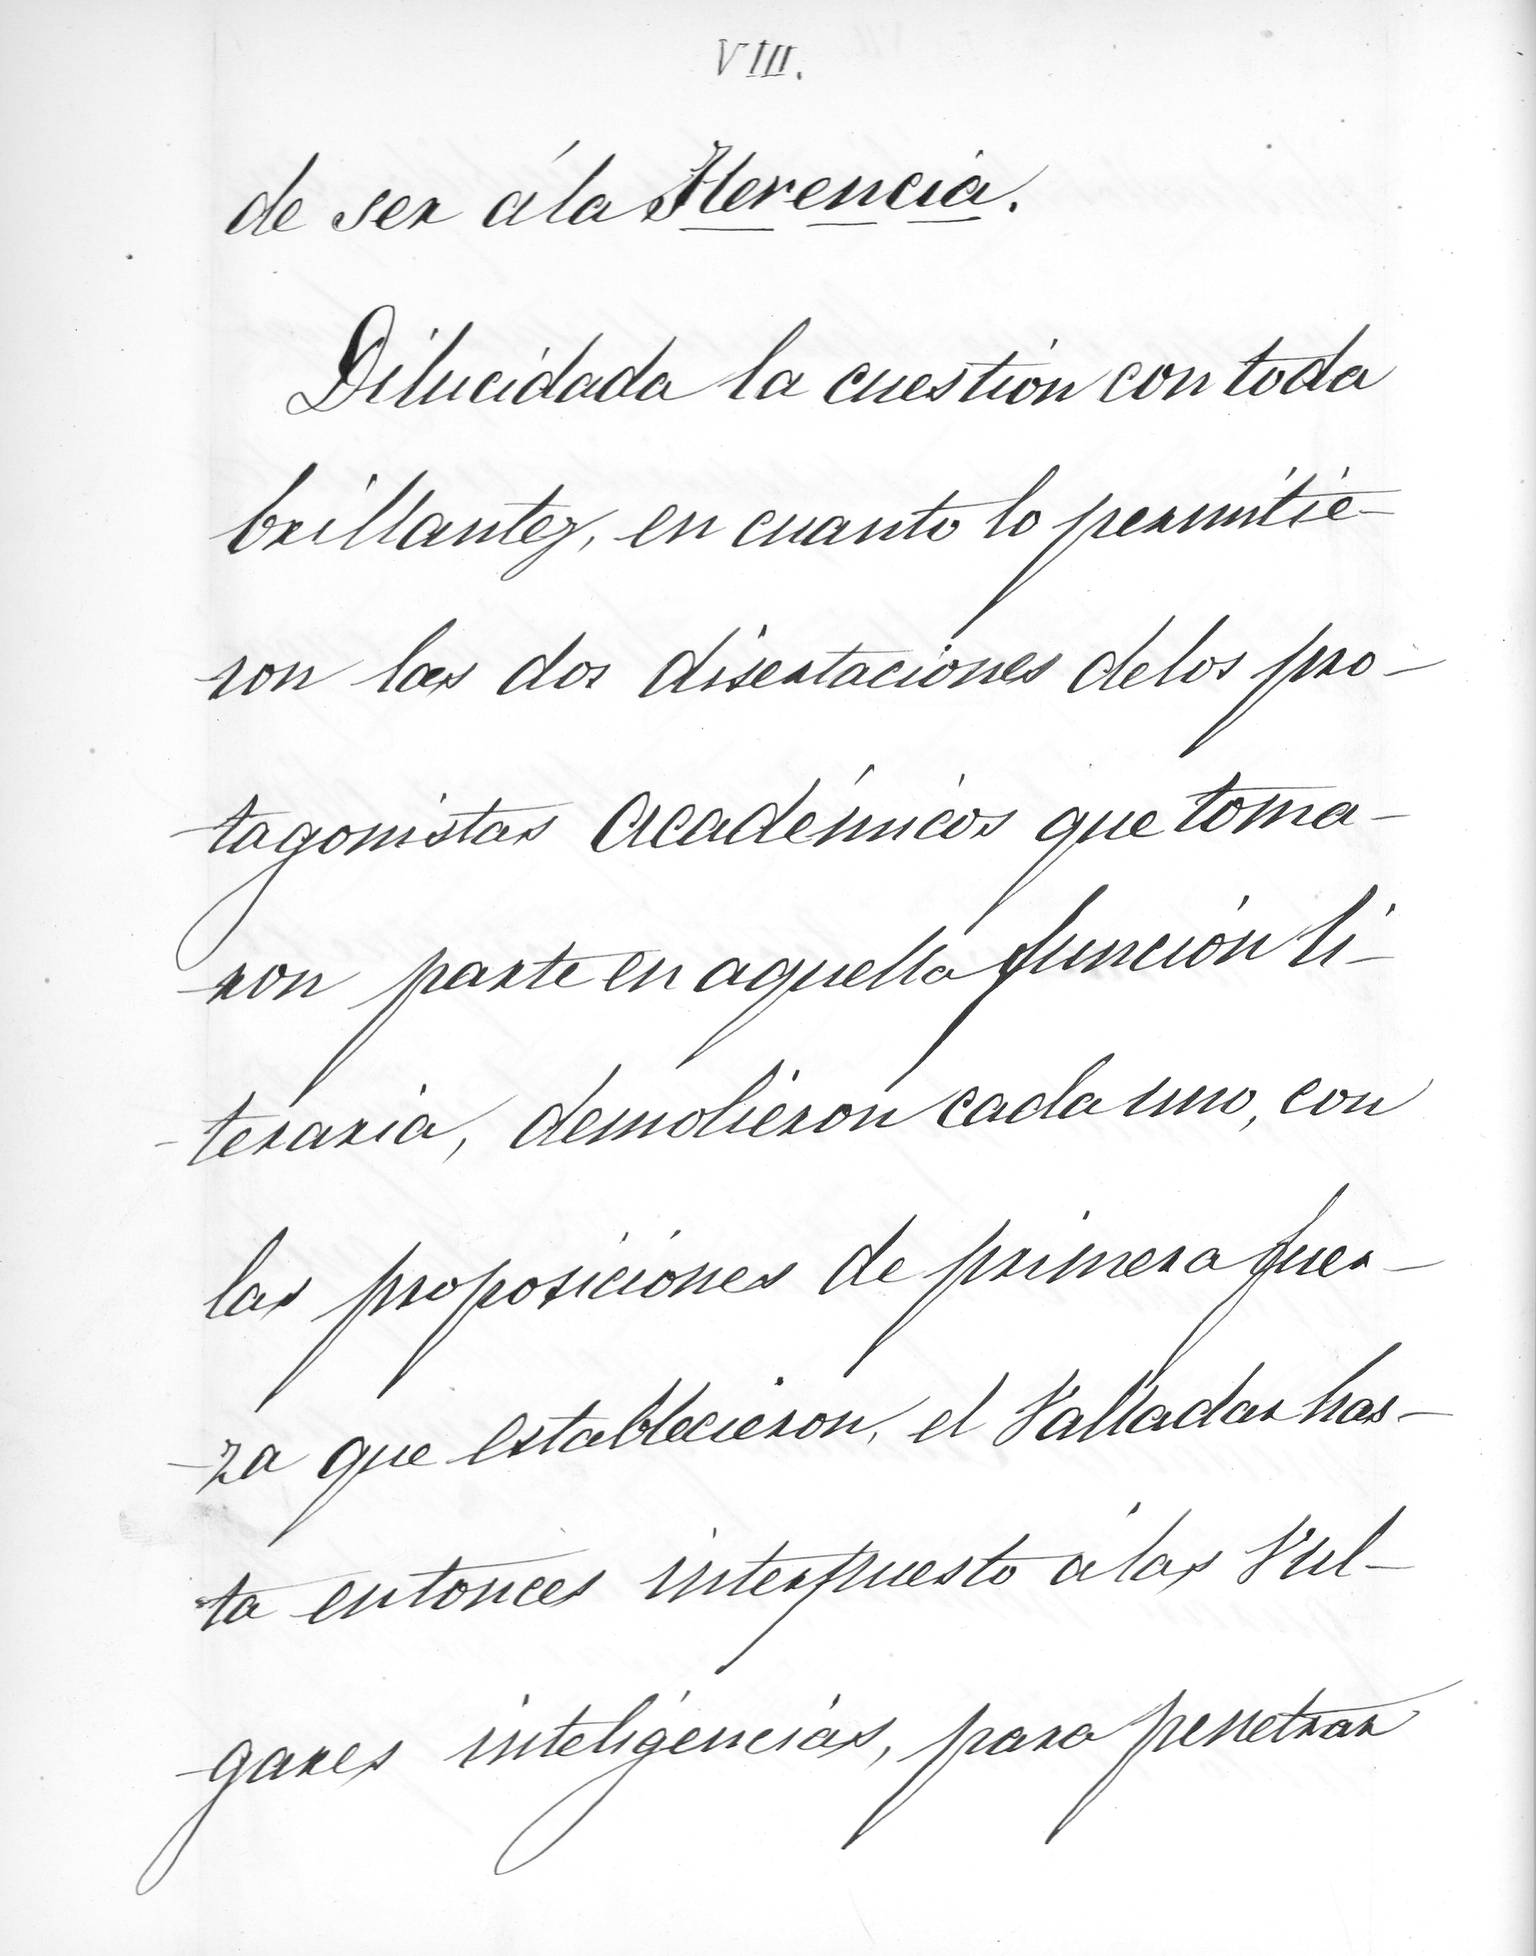 VIII.
de ser á la Herencia.
Dilucidada la cuestión con toda
brillantez, en cuanto lo permitie-
ron las dos disertaciones de los pro-
tagonistas Académicos que toma-
ron parte en aquella función li-
-teraria, demolieron cada uno, con
las proposiciones de primera fuer-
-za que establecieron, el Valladar has-
ta entonces interpuesto á las Vul-
-gares inteligencias, para penetrar